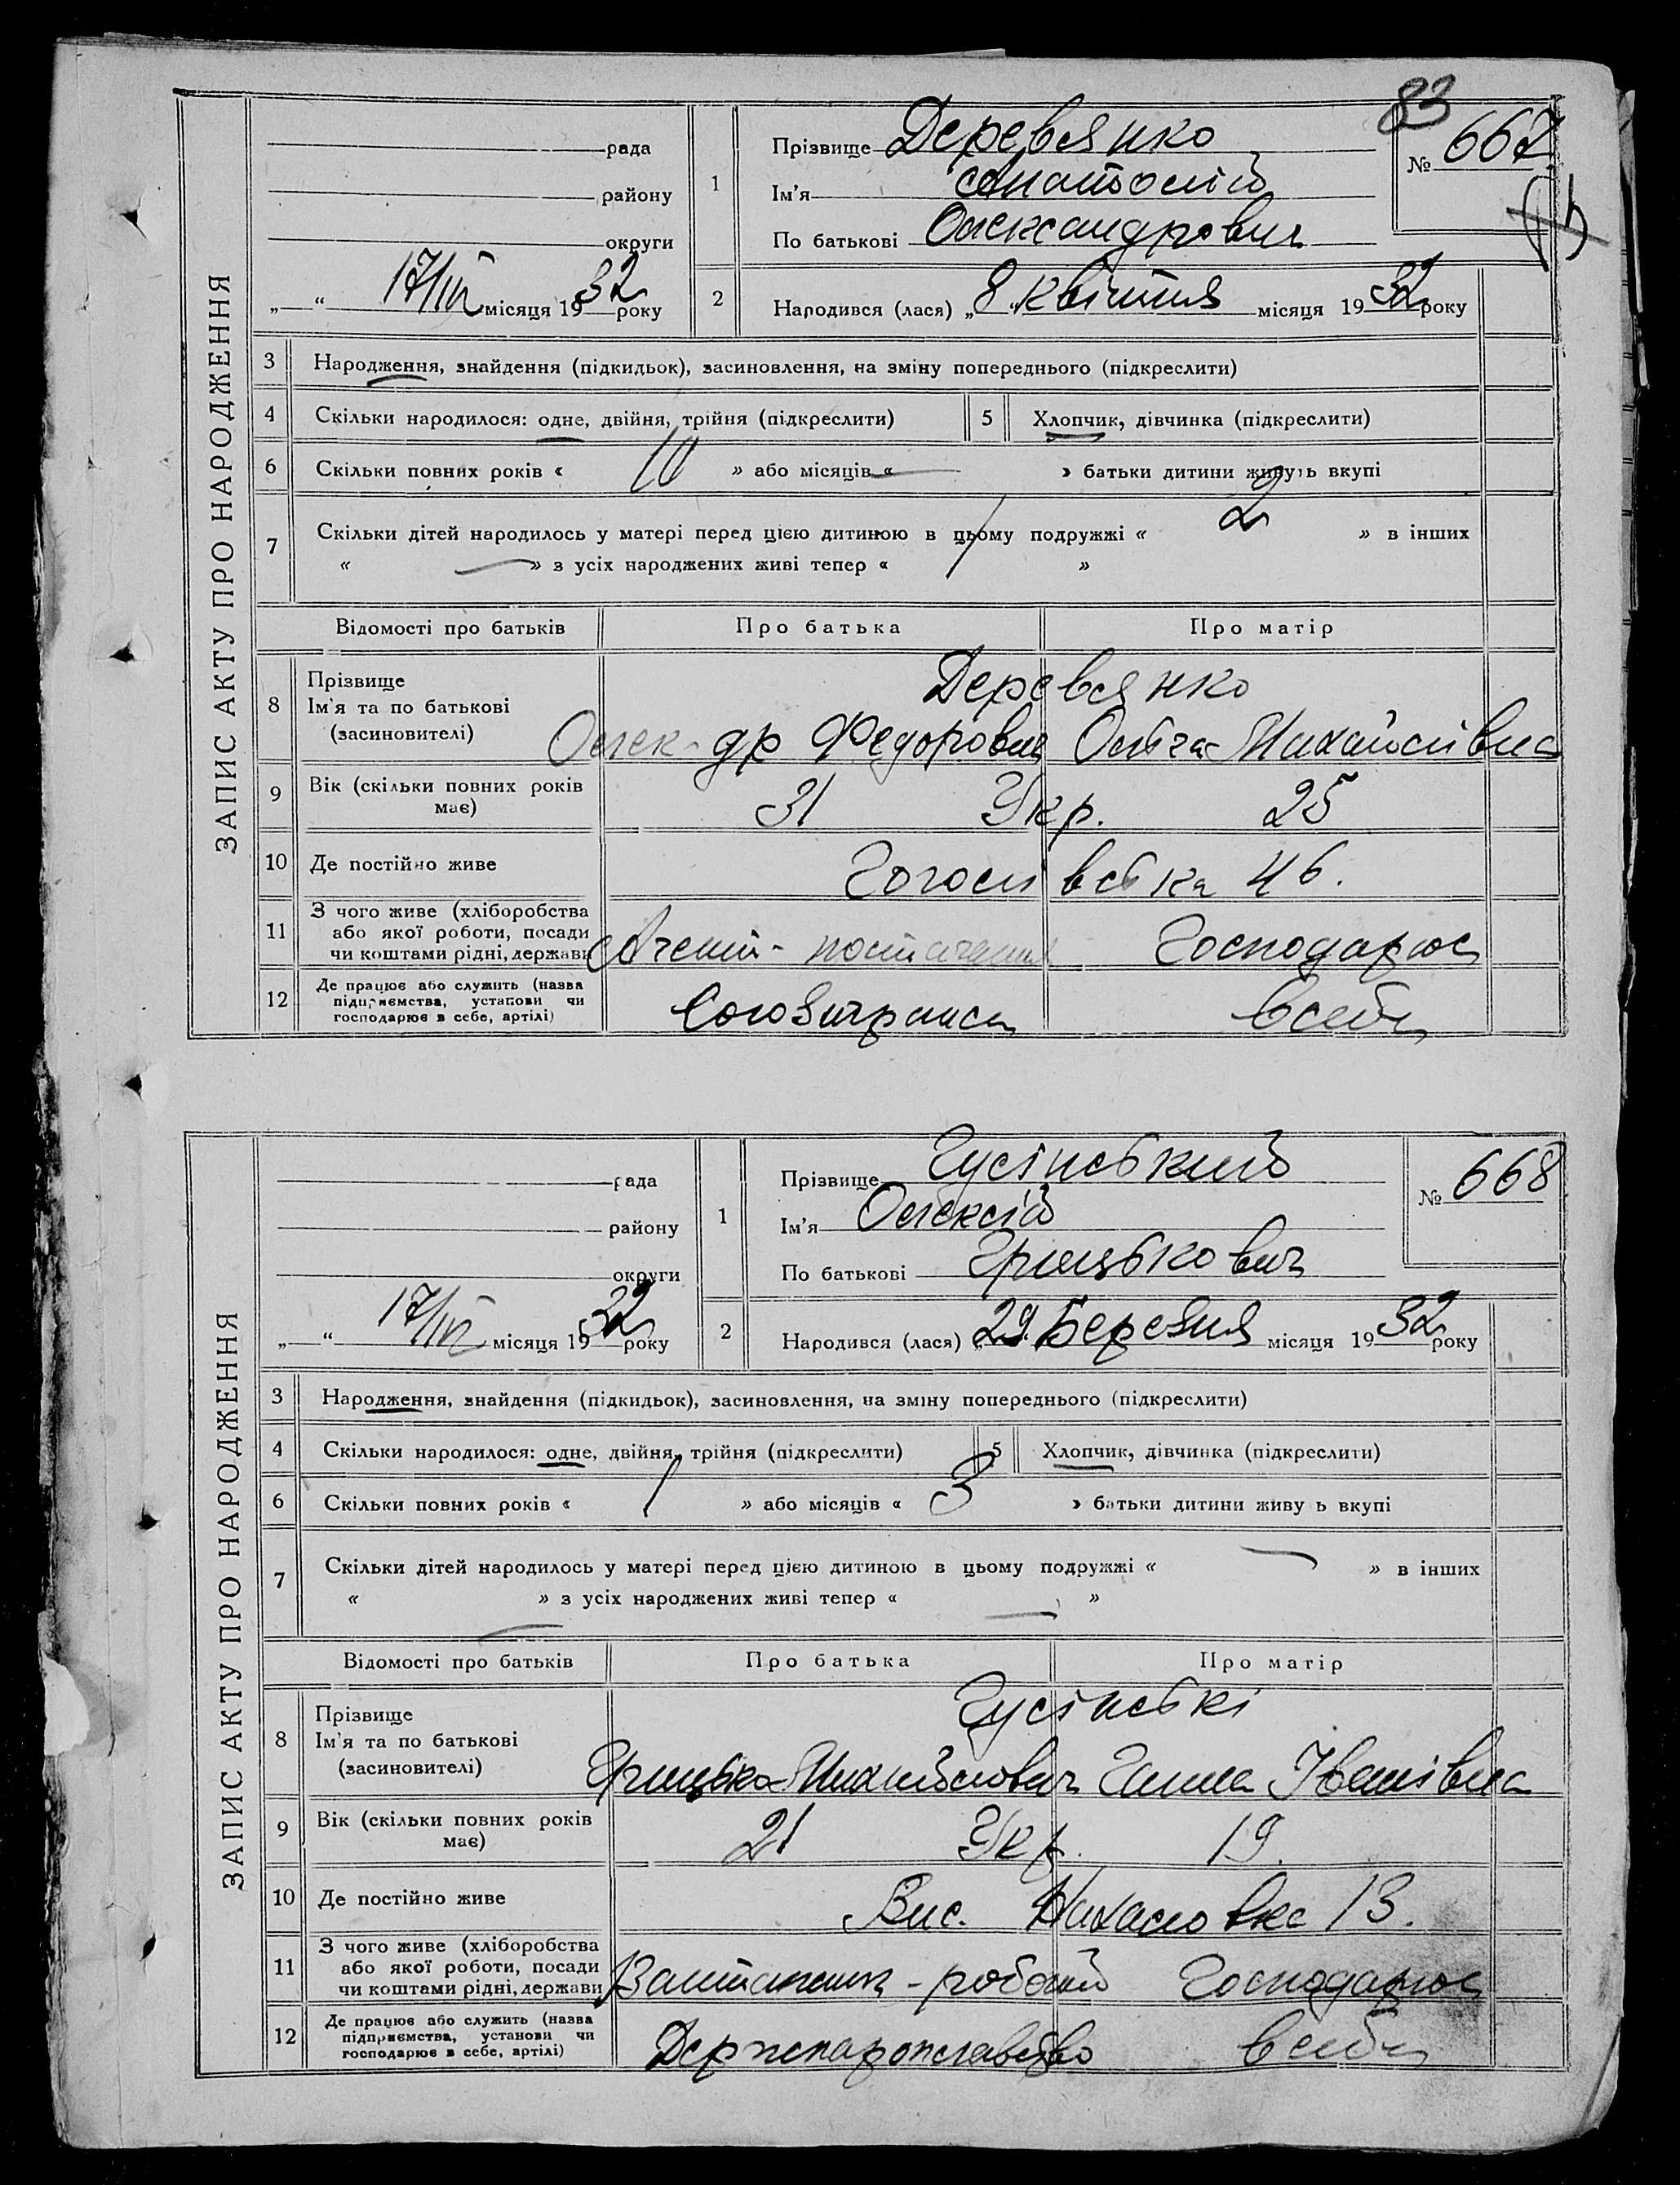 83
рада
Прізвище Деревянко
№ 667
району
1
Ім'я Анатолій
округи
По батькові Олександрович
„ “ 17/IV місяця 1932 року
2
Народився (лася) „8 квітня місяця 1932 року
ЗАПИС АКТУ ПРО НАРОДЖЕННЯ
3 Народження, знайдення (підкидьок), засиновлення, на зміну попереднього (підкреслити)
4 Скільки народилося: одне, двійня, трійня (підкреслити) 5 Хлопчик, дівчинка (підкреслити)
6 Скільки повних років « 10 » або місяців « — » батьки дитини живуть вкупі
7 Скільки дітей народилось у матері перед цією дитиною в цьому подружжі « 2 » в інших
« — » з усіх народжених живі тепер « 1 »
Відомості про батьків Про батька Про матір
8 Прізвище Деревянко
Ім'я та по батькові Олек-др Федорович Ольга Михайлівна
(засиновителі)
9 Вік (скільки повних років має) 31 Укр. 25
10 Де постійно живе Гоголівська 46.
11 З чого живе (хліборобства
або якої роботи, посади
чи коштами рідні, держави Агент - постачання Господарює
12 Де працює або служить (назва
підприємства, установи чи
господарює в себе, артілі) Союзтранс в себе
рада
Прізвище Гусінський
№ 668
району
1
Ім'я Олексій
округи
По батькові Грицькович
„ “ 17/IV місяця 1932 року
2
Народився (лася) „29 Березня місяця 1932 року
ЗАПИС АКТУ ПРО НАРОДЖЕННЯ
3 Народження, знайдення (підкидьок), засиновлення, на зміну попереднього (підкреслити)
4 Скільки народилося: одне, двійня, трійня (підкреслити) 5 Хлопчик, дівчинка (підкреслити)
6 Скільки повних років « 1 » або місяців « 3 » батьки дитини живу ь вкупі
7 Скільки дітей народилось у матері перед цією дитиною в цьому подружжі « — » в інших
« — » з усіх народжених живі тепер « — »
Відомості про батьків Про батька Про матір
8 Прізвище Гусінські
Ім'я та по батькові Грицько Михайлович Ганна Іванівна
(засиновителі)
9 Вік (скільки повних років має) 21 Укр. 19.
10 Де постійно живе Вис. 13.
11 З чого живе (хліборобства
або якої роботи, посади
чи коштами рідні, держави Вантажник - робочий Господарює
12 Де працює або служить (назва
підприємства, установи чи
господарює в себе, артілі) Держпароплавство в себе